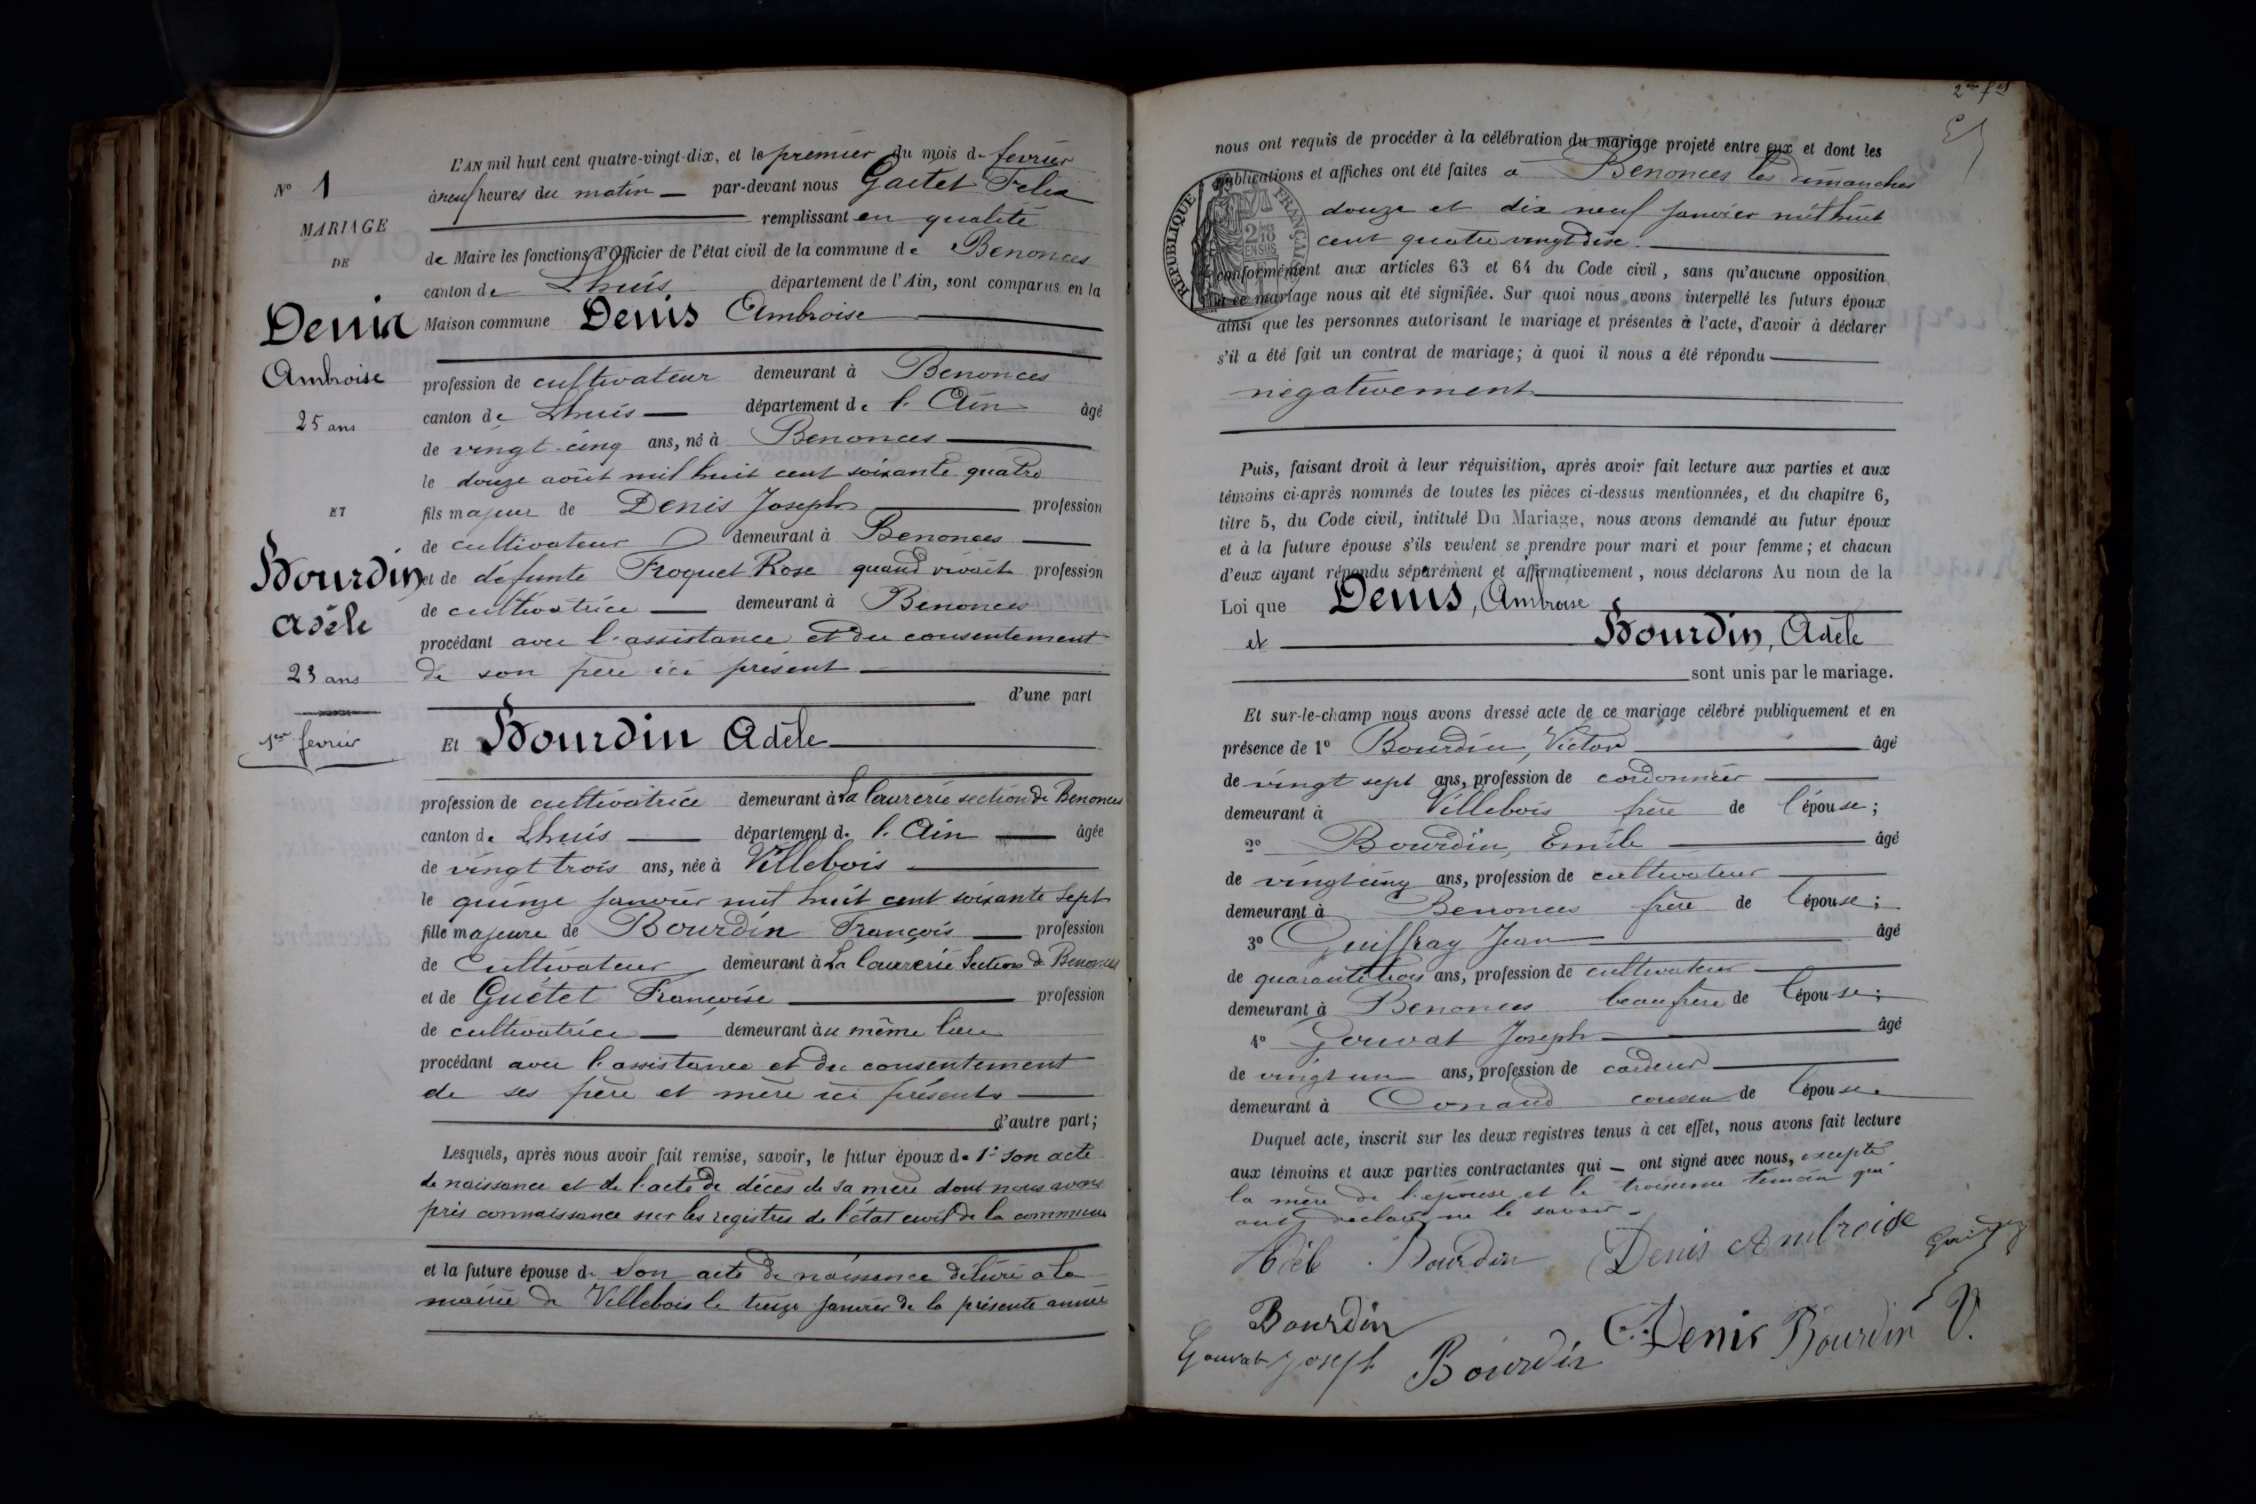 L'AN mil huit cent quatre-vingt-dix, et le premier du mois de fevrier
N° 1
à neuf heures du matin — par-devant nous Gaetet Felix
remplissant en qualité
MARIAGE
DE
de Maire les fonctions d'Officier de l'état civil de la commune de Benonces
canton de Lhuis département de l'Ain, sont comparus en la
Denis
Maison commune Denis Ambroise
Ambroise
profession de cultivateur demeurant à Benonces
25 ans
canton de Lhuis — département de l'Ain âgé
de vingt-cinq ans, né à Benonces
le douze août mil huit cent soixante quatre
ET
fils majeur de Denis Joseph profession
de cultivateur demeurant à Benonces
Bourdin
et de défunte Froquet Rose quand vivait profession
Adèle
de cultivatrice — demeurant à Benonces
procédant avec l'assistance et du consentement
23 ans
de son père ici présent
d'une part
1er fevrier
Et Bourdin Adèle
profession de cultivatrice demeurant à La section de Benonces
canton de Lhuis — département de l'Ain — âgée
de vingt trois ans, née à Villebois
le quinze janvier mil huit cent soixante sept
fille majeure de Bourdin François — profession
de Cultivateur demeurant à La Section de Benonces
et de Guétet Françoise profession
de cultivatrice — demeurant au même lieu
procédant avec l'assistance et du consentement
de ses père et mère ici présents
d'autre part;
Lesquels, après nous avoir fait remise, savoir, le futur époux de 1° son acte
de naissance et de l'acte de décès de sa mère dont nous avons
pris connaissance sur les registres de l'état civil de la commune
et la future épouse de Son acte de naissance délivré à la
mairie de Villebois le treize janvier de la présente année
nous ont requis de procéder à la célébration du mariage projeté entre eux et dont les
publications et affiches ont été faites à Benonces les dimanches
douze et dix neuf janvier mil huit
cent quatre vingt dix.
RÉPUBLIQUE FRANÇAISE
conformément aux articles 63 et 64 du Code civil, sans qu'aucune opposition
à ce mariage nous ait été signifiée. Sur quoi nous avons interpellé les futurs époux
ainsi que les personnes autorisant le mariage et présentes à l'acte, d'avoir à déclarer
s'il a été fait un contrat de mariage; à quoi il nous a été répondu
négativement
Puis, faisant droit à leur réquisition, après avoir fait lecture aux parties et aux
témoins ci-après nommés de toutes les pièces ci-dessus mentionnées, et du chapitre 6,
titre 5, du Code civil, intitulé Du Mariage, nous avons demandé au futur époux
et à la future épouse s'ils veulent se prendre pour mari et pour femme; et chacun
d'eux ayant répondu séparément et affirmativement, nous déclarons Au nom de la
Loi que Denis, Ambroise
et Bourdin, Adèle
sont unis par le mariage.
Et sur-le-champ nous avons dressé acte de ce mariage célébré publiquement et en
présence de 1° Bourdin, Victor âgé
de vingt sept ans, profession de cordonnier
demeurant à Villebois frère de l'épouse;
2° Bourdin, Emile âgé
de vingt cinq ans, profession de cultivateur
demeurant à Benonces frère de l'épouse;
3° Guiffray Jean âgé
de quarante trois ans, profession de cultivateur
demeurant à Benonces beau frère de l'épouse;
4° Gouvat Joseph âgé
de vingt un ans, profession de
demeurant à Conand cousin de l'épouse.
Duquel acte, inscrit sur les deux registres tenus à cet effet, nous avons fait lecture
aux témoins et aux parties contractantes qui — ont signé avec nous, excepté
la mère de l'épouse et le troisième témoin qui
ont déclaré ne le savoir.
Adèle Bourdin Denis Ambroise
Bourdin
Denis Bourdin V.
Gouvat Joseph Bourdin